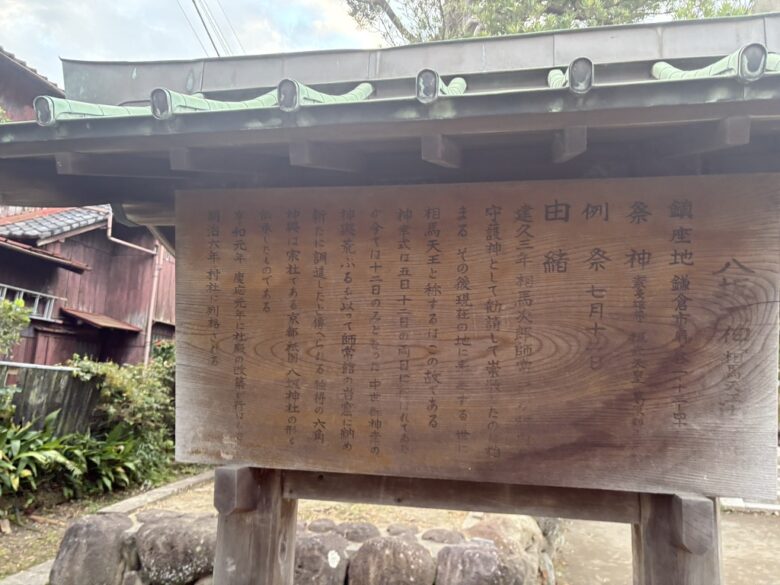 八坂 神 相馬天王
鎮座地 鎌倉市扇ガ谷
祭神 素戔雄命 桓武天皇 葛原親王
例祭 七月十 日
由緒
建久三年 相馬次郎師常
守護神として勧請して崇敬したの
まる その後現在の地に する 世に
相馬天王と称するはこの故である
神輿式は五日十二日の両日に れてゐた
が今では十二日のみとなった 中世 御神幸の
神輿荒ぶるを以って師常館の岩窟に納め
新たに調進したと傳へられる独得の六角
神輿は宗社である京都祇園八坂神社の形を
伝承したものである
享和元年 慶応元年に社殿の改築が行
明治六年 村社に列格される